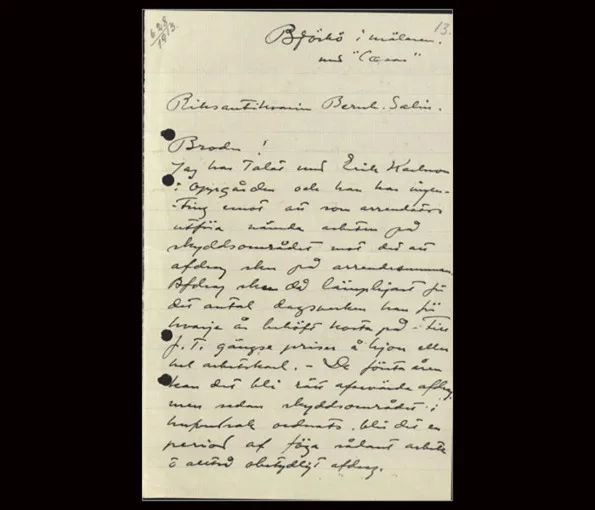 628
1913.
13.
Björkö i Mälaren.
med "Cæsar"
Riksantikvarien Bernh. Salin.
Broder!
Jag har talat med Erik Karlsson
i Oppgården och han har ingen-
ting emot att som arrendator
utföra nämda arbeten på
skyddsområdet mot det att
afdrag sker på arrendesumman.
Afdrag sker då lämpligast för
det antal dagsverken han för
hvarje år behöft kosta på – till
f. T. gängse priser å hjon eller
hel arbetskarl. – De första åren
kan det bli rätt afsevärda afdrag,
men sedan skyddsområdet i
ordnats, blir det en
period af föga sådant arbete
o alltså obetydligt afdrag.